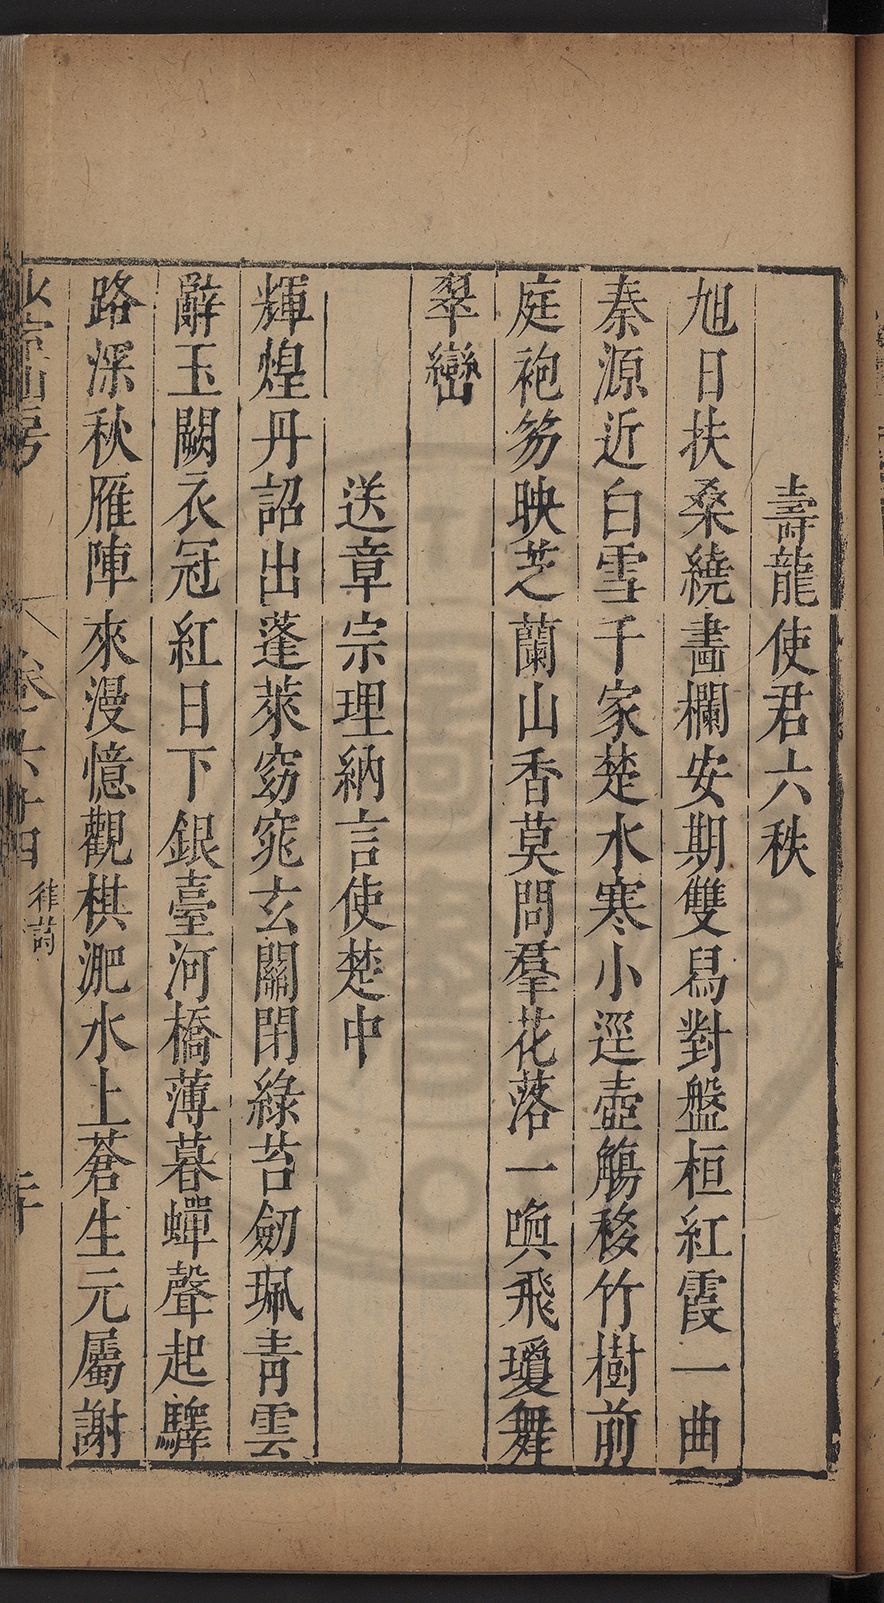 壽龍使君六秩
旭日扶桑繞畵欄安期雙舄對盤桓紅霞一曲
秦源近白雪千家楚水寒小逕壺觴移竹樹前
庭袍笏映芝蘭山香莫問羣花落一喚飛瓊舞
翠巒
送章宗理納言使楚中
輝煌丹詔出蓬萊窈窕玄關閉綠苔劒珮靑雲
辭玉闕衣冠紅日下銀臺河橋薄暮蟬聲起驛
路深秋雁陣來漫憶觀棋淝水上蒼生元屬謝
山房
卷六十四
律詩